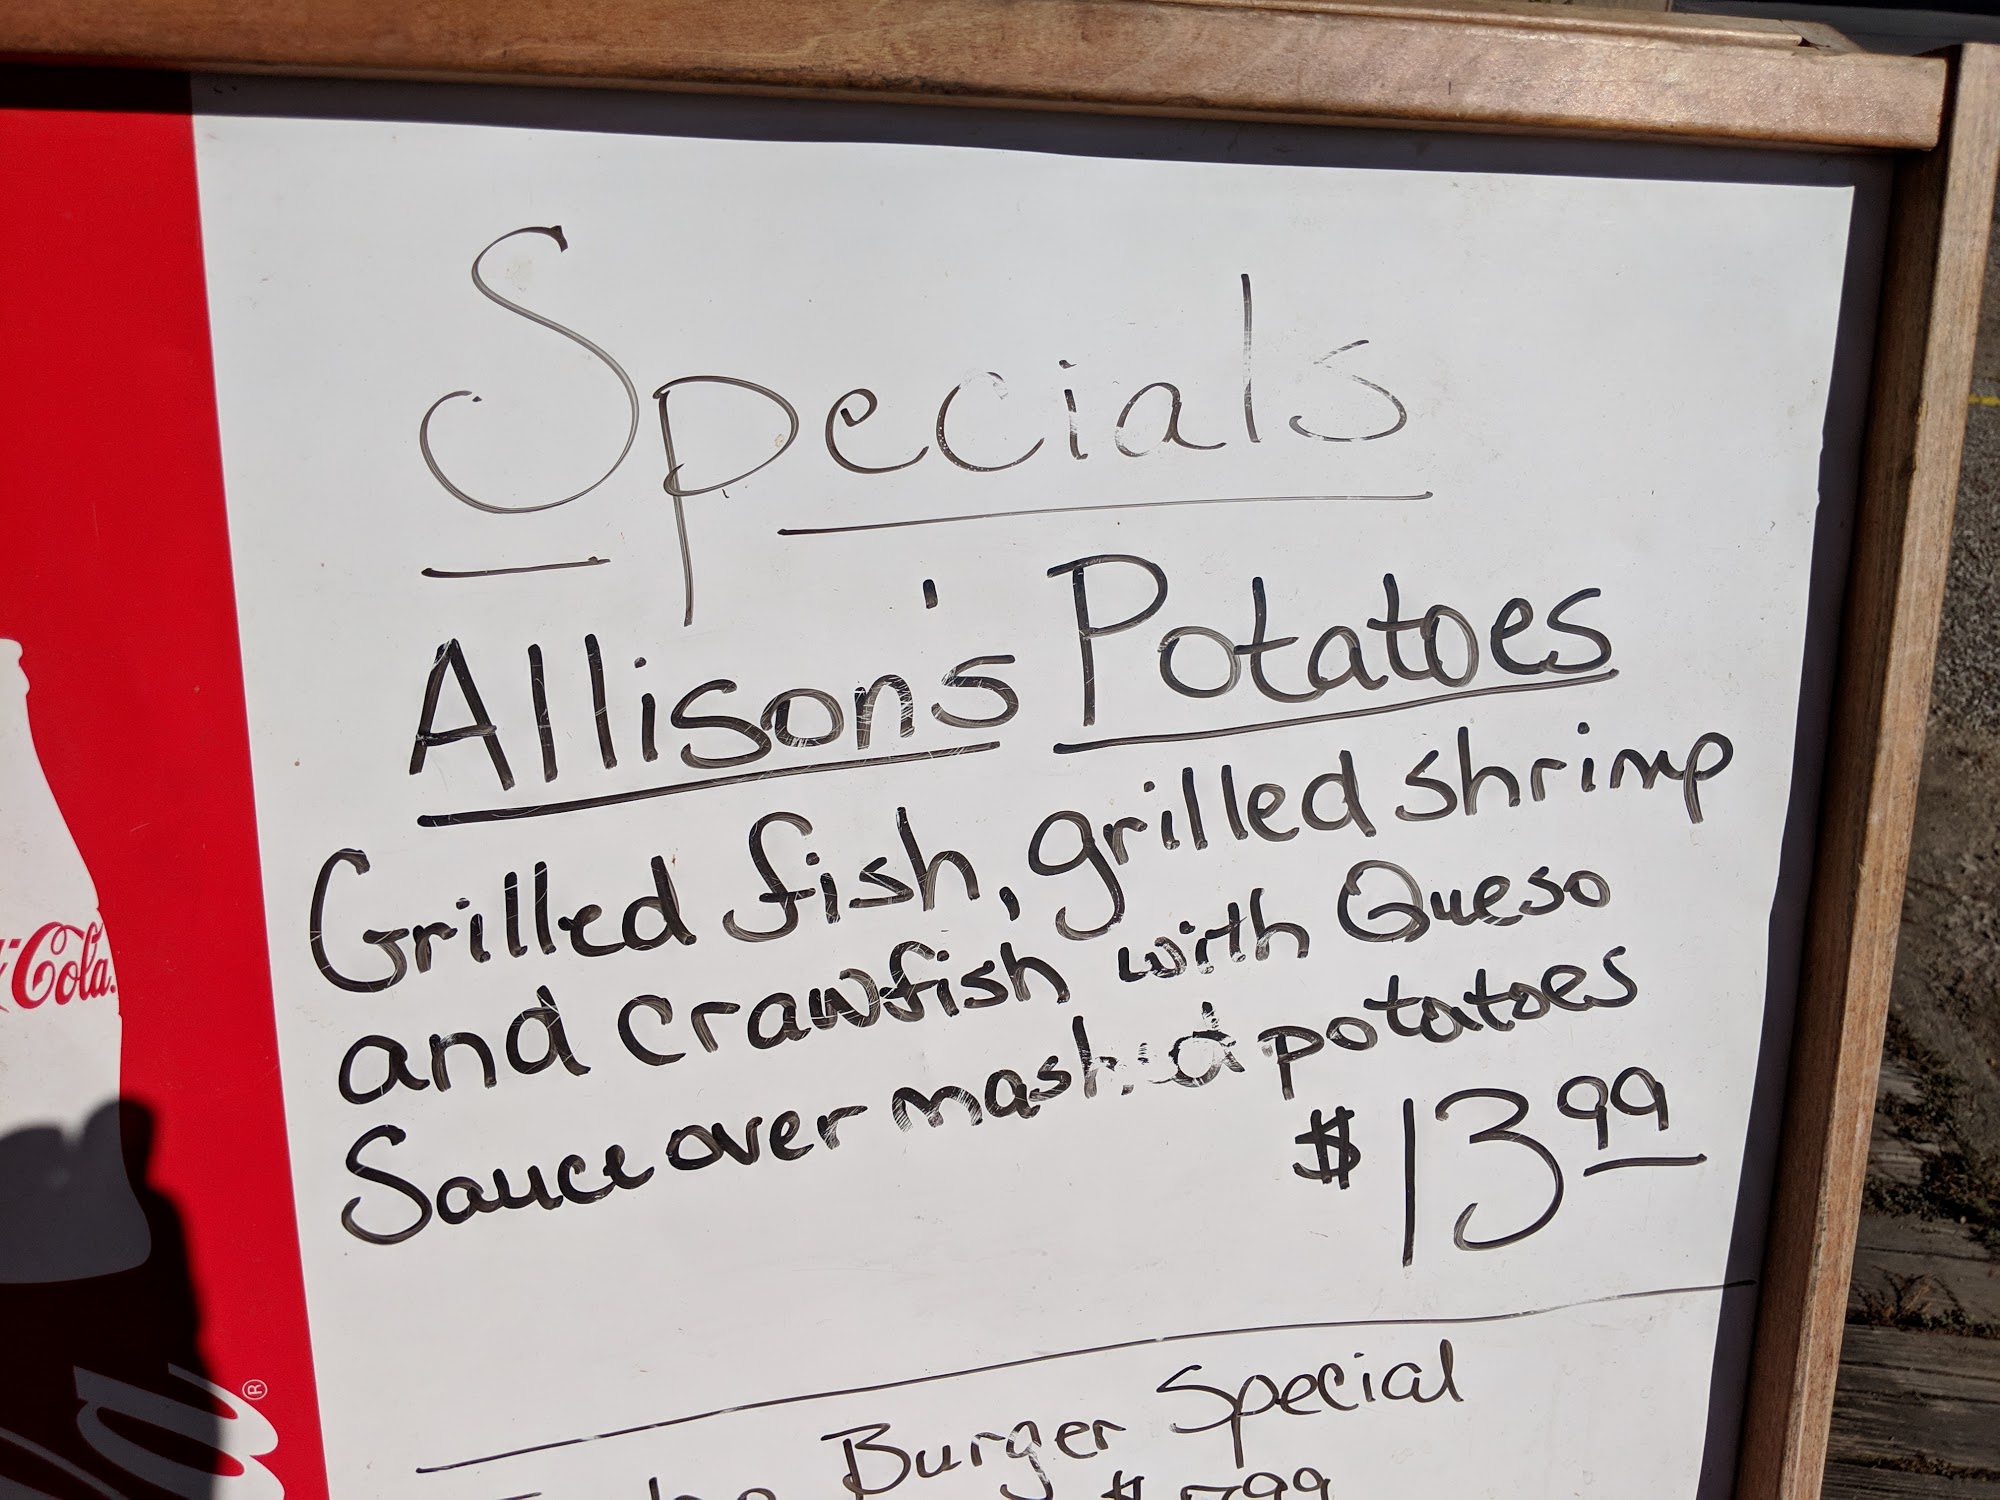 Specials
Allison's Potatoes
Grilled fish, grilled shrimp
and crawfish with Queso
Sauce over mashed potatoes
$13.99
Burger Special
Cola